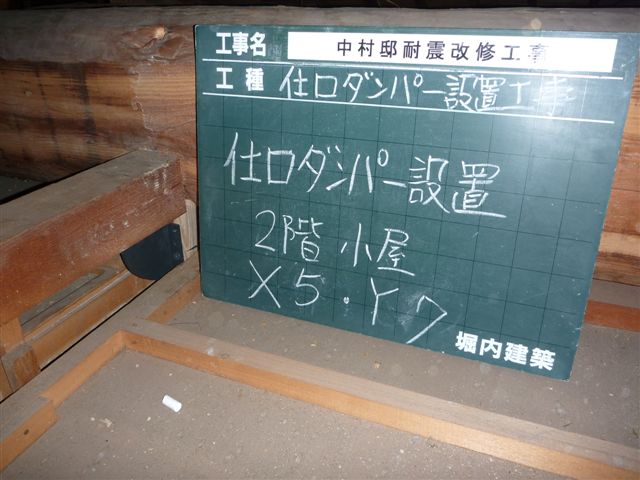 工事名 中村邸耐震改修工事
工種 仕口ダンパー設置工事
仕口ダンパー設置
2階 小屋
X5.Y7
堀内建築